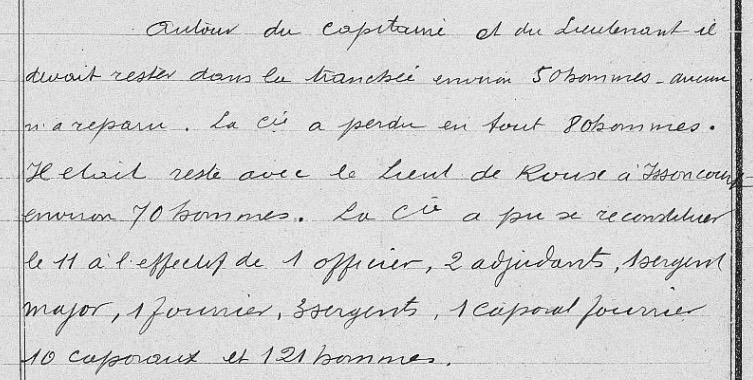 Autour du capitaine et du Lieutenant il
devait rester dans la tranchée environ 50 hommes - aucun
n'a reparu. La Cie a perdu en tout 80 hommes.
Il etait resté avec le Lieut de Rouse à Issoncourt
environ 70 hommes. La Cie a pu se reconstituer
le 11 à l'effectif de 1 officier, 2 adjudants, 1 sergent
major, 1 fourrier, 3 sergents, 1 caporal fourrier
10 caporaux et 121 hommes.